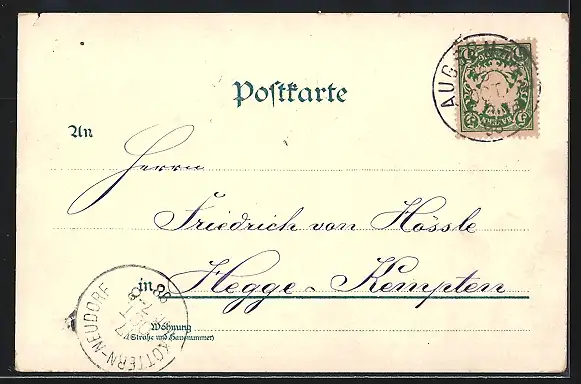 AUGSBURG
Postkarte
An
Herrn
Friedrich von Hössle
in Hegge - Kempten
Wohnung
(Straße und Hausnummer)
KOTTERN-NEUDORF